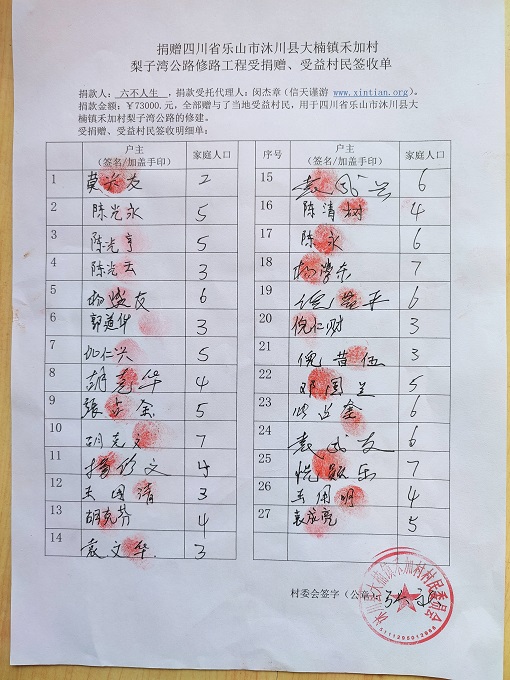 捐赠四川省乐山市沐川县大楠镇禾加村
梨子湾公路修路工程受捐赠、受益村民签收单
捐款人：六不人生，捐款受托代理人：闵杰章（信天谨游 www.xintian.org）。
捐款金额：￥73000.元，全部赠与了当地受益村民，用于四川省乐山市沐川县大
楠镇禾加村梨子湾公路的修建。
受捐赠、受益村民签收明细单：
户主
（签名/加盖手印）
家庭人口
1 友 2
2 陈光永 5
3 陈光亨 5
4 陈光云 3
5 杨 友 6
6 郭道华 3
7 仁兴 5
8 胡克华 4
9 张 金 5
10 胡克文 7
11 杨 文 4
12 王国清 3
13 胡克芬 4
14 袁文华 3
序号
户主
（签名/加盖手印）
家庭人口
15 袁 兴 6
16 陈清树 4
17 陈永 6
18 杨学东 7
19 倪 平 6
20 倪仁财 3
21 倪昔伍 3
22 邓国 5
23 6
24 袁 友 6
25 乐 7
26 王国明 4
27 袁成亮 5
村委会签字（公章）：
沐川县大楠镇禾加村村民委员会